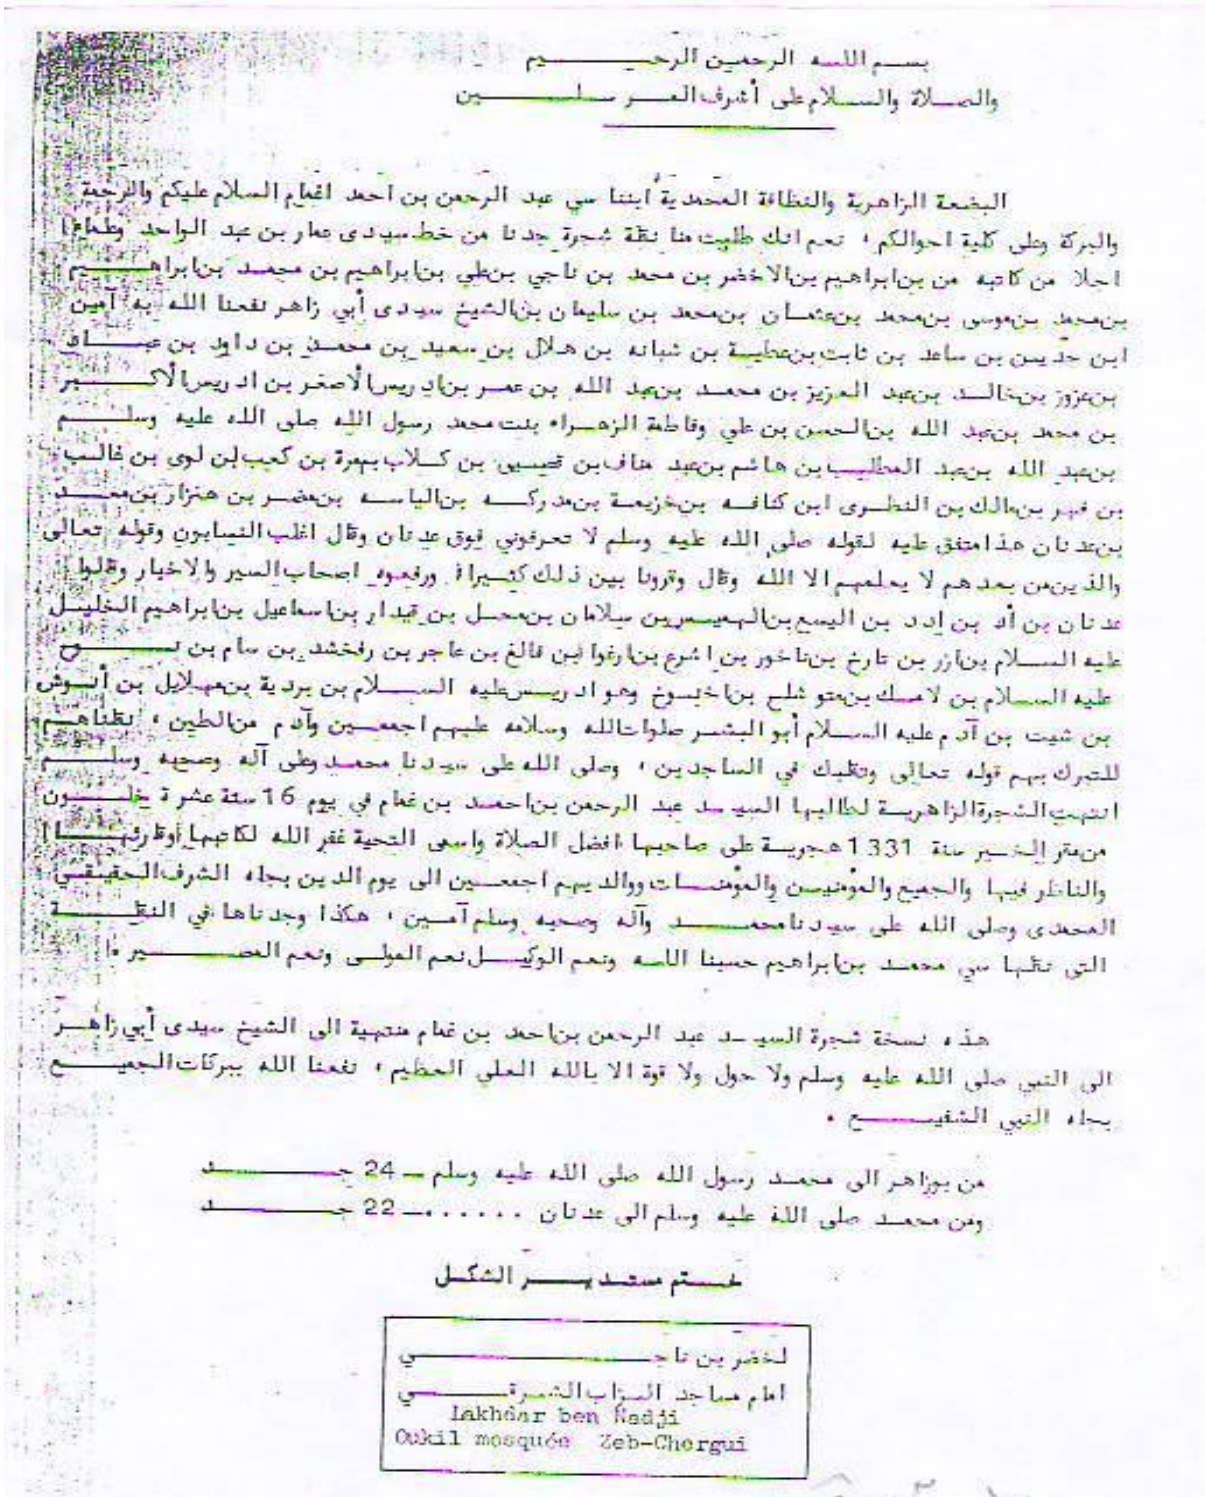 بسم الله الرحمن الرحيم
والصلاة والسلام على أشرف المرسلين
البضعة الزاهرية والنظافة المحمدية أبننا سي عبد الرحمن بن احمد اغمام السلام عليكم والرحمة
والبركة وعلى كلية احوالكم ، نعم انك طلبت منا نقلة شجرة جدنا من خط سيدى عمار بن عبد الواحد
اجلا من كاتبه من بن ابراهيم بن الاخضر بن محمد بن ناجي بن علي بن ابراهيم بن محمد بن ابراهيم
بن محمد بن موسى بن محمد بن عثمان بن محمد بن سليمان بن الشيخ سيدى أبي زاهر نفعنا الله به آمين
ابن جديس بن ساعد بن ثابت بن عطية بن شبانه بن هلال بن سعيد بن محمد بن دايد بن
بن عزوز بن خالد بن عبد العزيز بن محمد بن عبد الله بن عمر بن ادريس الأصغر بن ادريس الأكبر
بن محمد بن عبد الله بن الحسن بن علي وفاطمة الزهراء بنت محمد رسول الله صلى الله عليه وسلم
بن عبد الله بن عبد المطلب بن هاشم بن عبد مناف بن قصي بن كلاب بن مرة بن كعب لبن لوى بن غالب
بن فهر بن مالك بن النظرى ابن كنافه بن خزيمة بن مدركه بن الياسه بن مضر بن هنزار بن معد
بن عدنان هذا متفق عليه لقوله صلى الله عليه وسلم لا تعرفوني فوق عدنان وقال اغلب النسابون وقوله تعالى
والذين من بعدهم لا يعلمهم الا الله وقال وقرونا بين ذلك كثيرا ورفعوه اصحاب السير والاخبار وقالوا
عدنان بن أد بن ادد بن اليسع بن الهميسع بن سلامان بن محسل بن قيدار بن اسماعيل بن ابراهيم الخليل
عليه السلام بن ازر بن تارخ بن ناخور بن اشرع بن ارغوا ابن فالغ بن عاجر بن رفخشد بن سام بن نوح
عليه السلام بن لامك بن متو شلح بن اخنوخ وهو ادريس عليه السلام بن يردية بن مهلايل بن أنوش
بن شيت بن آدم عليه السلام أبو البشر صلوات الله وسلامه عليهم اجمعين وآدم من الطين ، نقلناهم
للتبرك بهم قوله تعالى وتقلبك في الساجدين ، وصلى الله على سيدنا محمد وعلى آله وصحبه وسلم
انتهت الشجرة الزاهرية لطالبها السيد عبد الرحمن بن احمد بن غمام في يوم 16 ستة عشرة خلون
من صفر الخير سنة 1331 هجرية على صاحبها افضل الصلاة واسمى التحية غفر الله لكاتبها أوقارئها
والناظر فيها والجميع والمؤمنين والمؤمنات ووالديهم اجمعين الى يوم الدين بجاه الشرف الحقيقي
المحمدى وصلى الله على سيدنا محمد وآله وصحبه وسلم آمين ، هكذا وجدناها في النقلة
التى نقلها سي محمد بن ابراهيم حسبنا الله ونعم الوكيل نعم المولى ونعم المصير .
هذه نسخة شجرة السيد عبد الرحمن بن احمد بن غمام منتهية الى الشيخ سيدى أبي زاهر
الى النبي صلى الله عليه وسلم ولا حول ولا قوة الا بالله العلي العظيم ، نفعنا الله ببركات الجميع
بجاه النبي الشفيع .
من بوزاهر الى محمد رسول الله صلى الله عليه وسلم - 24 جد
ومن محمد صلى الله عليه وسلم الى عدنان ...... - 22 جد
ختم مستدير الشكل
لخضر بن ناجي
امام مساجد الزاب الشرقي
Lakhdar ben Nadji
Oukil mosquée Zeb-Chergui